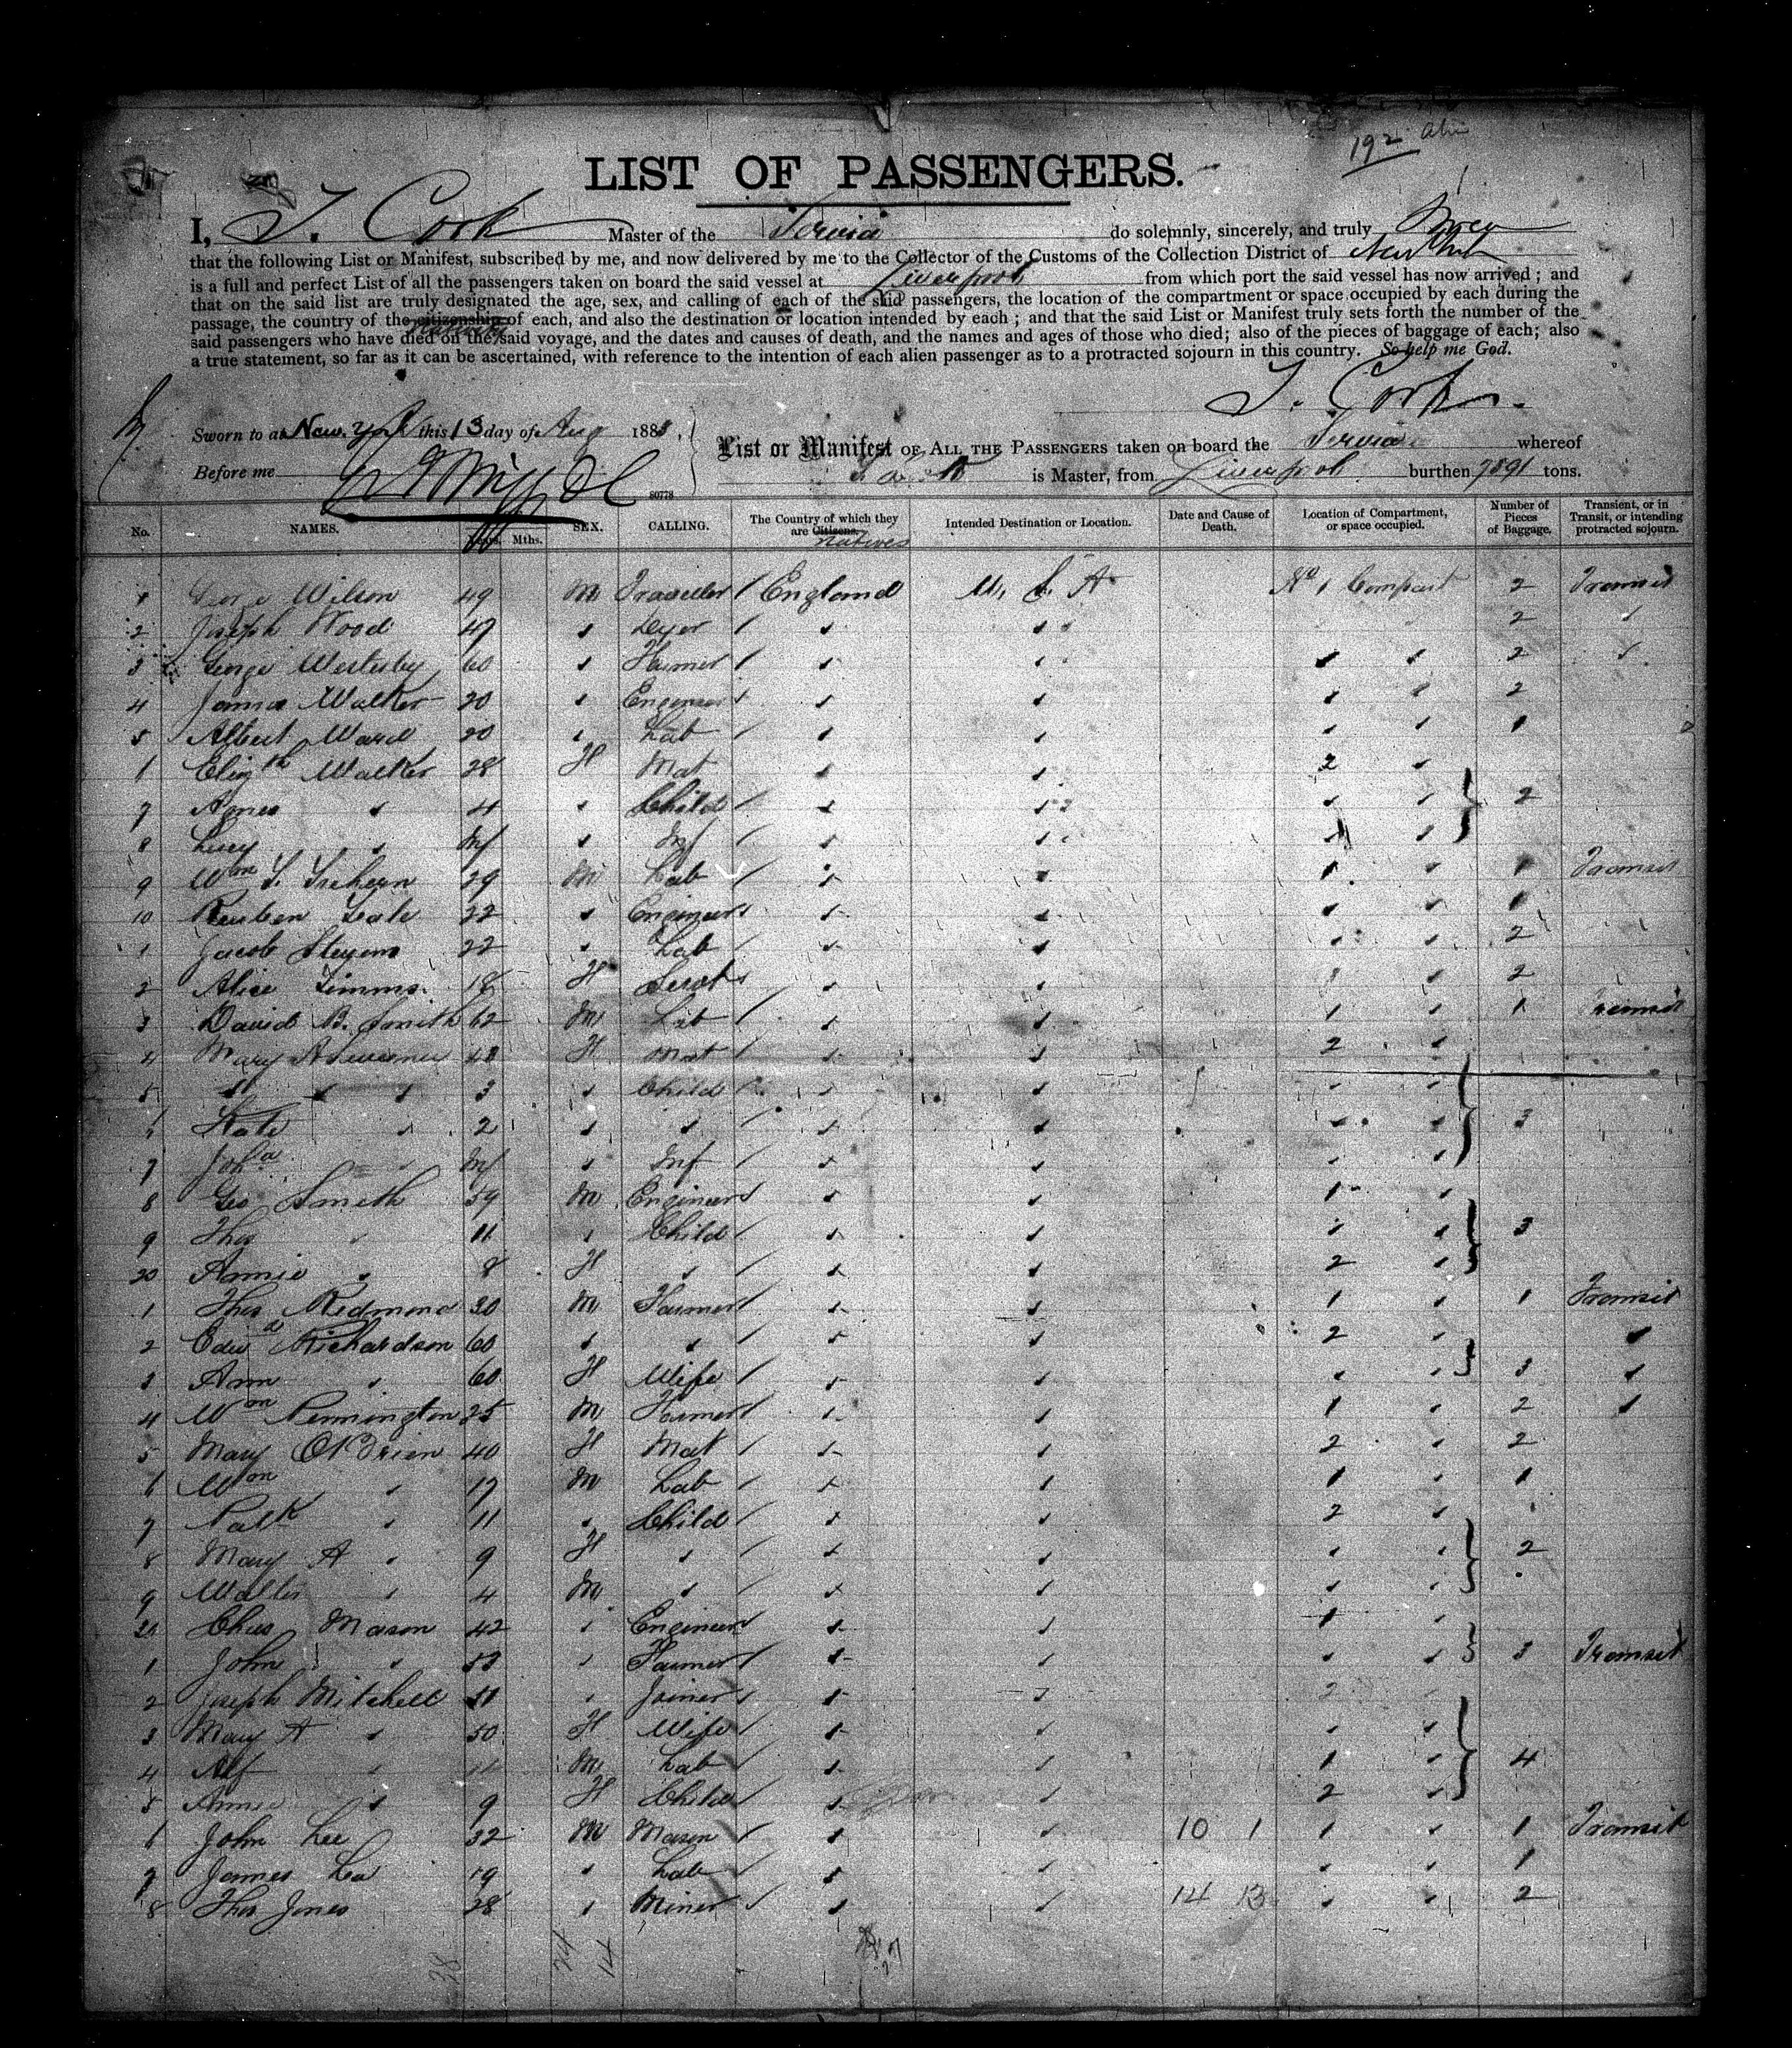 192
LIST OF PASSENGERS.
I, T. Cook Master of the Servia do solemnly, sincerely, and truly Swear
that the following List or Manifest, subscribed by me, and now delivered by me to the Collector of the Customs of the Collection District of New York
is a full and perfect List of all the passengers taken on board the said vessel at Liverpool from which port the said vessel has now arrived; and
that on the said list are truly designated the age, sex, and calling of each of the said passengers, the location of the compartment or space occupied by each during the
passage, the country of the citizenship of each, and also the destination or location intended by each; and that the said List or Manifest truly sets forth the number of the
said passengers who have died on the said voyage, and the dates and causes of death, and the names and ages of those who died; also of the pieces of baggage of each; also
a true statement, so far as it can be ascertained, with reference to the intention of each alien passenger as to a protracted sojourn in this country. So help me God.
T. Cook
Sworn to at New York this 13 day of Aug 188
Before me
80778
List or Manifest OF ALL THE PASSENGERS taken on board the Servia whereof
is Master, from Liverpool burthen 7391 tons.
No. NAMES. Years. Mths. SEX. CALLING. The Country of which they are Citizens. natives Intended Destination or Location. Date and Cause of Death. Location of Compartment, or space occupied. Number of Pieces of Baggage. Transient, or in Transit, or intending protracted sojourn.
1 George Wilson 49 M Traveller / England U. S. A No 1 Compart 2 Transit
2 Joseph Wood 47 " Dyer / " " 2 "
3 George Westerby 60 " Farmer / " " " " 2 "
4 James Walker 20 " Engineer / " " " " 2
5 Albert Ward 20 " Lab / " " " " 1
Elizth Walker 28 F Mat " " 2 "
7 Agnes " 4 " Child / " " " " } 2
8 Lucy " Inf " Inf / " " " "
9 Wm S. Trehern 29 M Lab / " " 1 " 1 Transit
10 Reuben Seale 22 " Engineer / " " " " 1
1 Jacob Stevens 22 " Lab " " " " 2
2 Alice Simms 18 F Servt " " " 2
3 David B. Smith 62 M Lab / " " 1 " 1 Transit
4 Mary F Mat / " " 2 "
5 " " 3 " Child / " " " "
Kate " 2 " " / " " " " } 3
7 Joha " Inf " Inf / " " " "
8 Geo Smith 39 M Engineer / " " 1 "
9 Thos " 11 " Child / " " " " } 3
20 Annie " 8 F " / " " 2 "
1 Thos Redmond 30 M Farmer / " " 1 " 1 Transit
2 Edwd Richardson 60 " " / " " 2 " "
3 Ann " 60 F Wife / " " " " } 3 "
4 Wm Pennington 25 M Farmer / " " 1 " 2 "
5 Mary O'Brien 40 F Mat / " " 2 " 2
6 Wm " 17 M Lab / " " 1 " 1
7 Patk " 11 " Child / " " 2 "
8 Mary A " 9 F " / " " " " } 2
9 Walter " 4 M " / " " " "
30 Chas Mason 42 " Engineer / " " 1 "
1 John " 53 " Farmer / " " " " } 3 Transit
2 Joseph Mitchell 51 " Joiner / " " 2
3 Mary A " 50 F Wife / " " " "
4 Alf " 11 M Lab / " " 1 " } 4
5 Annie " 9 F Child / " " 2 "
6 John Lee 32 M Mason / " " 10 1 1 " 1 Transit
7 James Lea 19 " Lab / " " " " 1
8 Thos Jones 28 " Miner / " " 14 13 " " 2
38 24 14